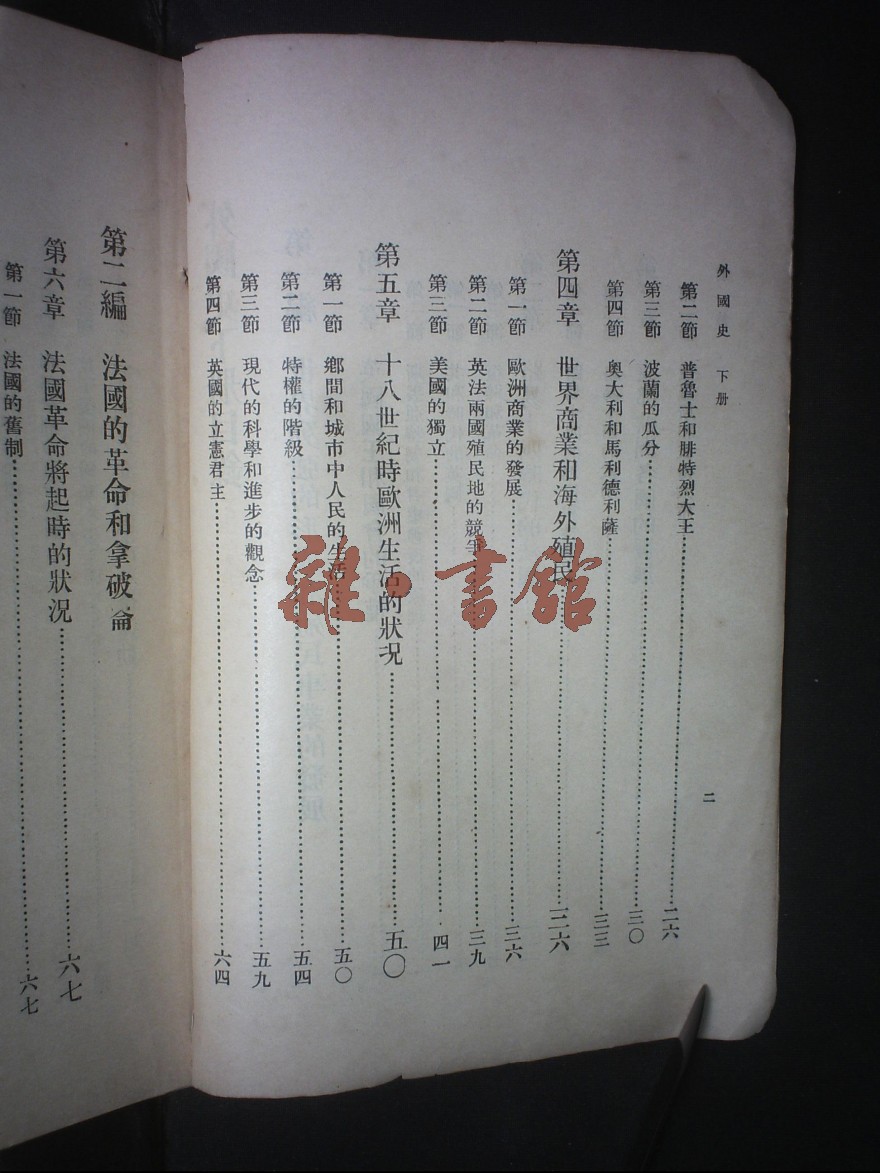 外國史 下册
二
第二節 普魯士和腓特烈大王……二六
第三節 波蘭的瓜分……三〇
第四節 奧大利和馬利德利薩……三三
第四章 世界商業和海外殖民……三六
第一節 歐洲商業的發展……三六
第二節 英法兩國殖民地的競爭……三九
第三節 美國的獨立……四一
第五章 十八世紀時歐洲生活的狀况……五〇
第一節 鄉間和城市中人民的生活……五〇
第二節 特權的階級……五四
第三節 現代的科學和進步的觀念……五九
第四節 英國的立憲君主……六四
第二編 法國的革命和拿破侖
第六章 法國革命將起時的狀况……六七
第一節 法國的舊制……六七
雜·書館